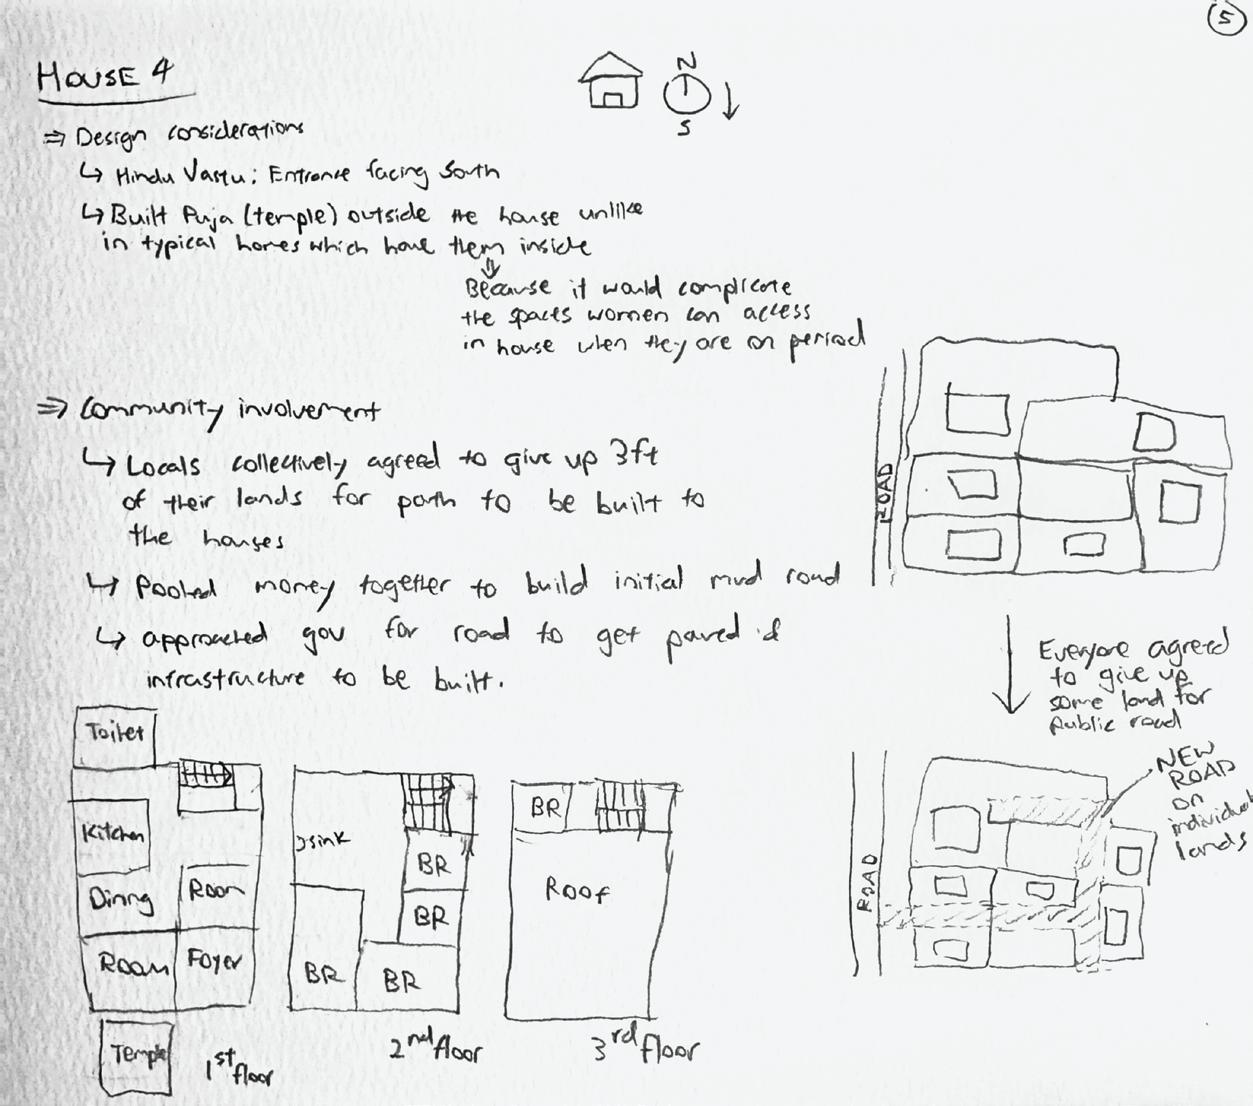 5
HOUSE 4
N
S
⇒ Design considerations
↳ Hindu Vastu: Entrance facing South
↳ Built Puja (temple) outside the house unlike
in typical homes which have them inside
Because it would complicate
the spaces women can access
in house when they are on period
⇒ Community involvement
↳ Locals collectively agreed to give up 3ft
of their lands for path to be built to
the houses
↳ Pooled money together to build initial mud road
↳ approached gov for road to get paved &
infrastructure to be built.
ROAD
Everyone agreed
to give up
some land for
public road
NEW
ROAD
on
individual
lands
ROAD
Toilet
Kitchen
Dining
Room
Room
Foyer
Temple
1st floor
sink
BR
BR
BR
BR
2nd floor
BR
Roof
3rd floor